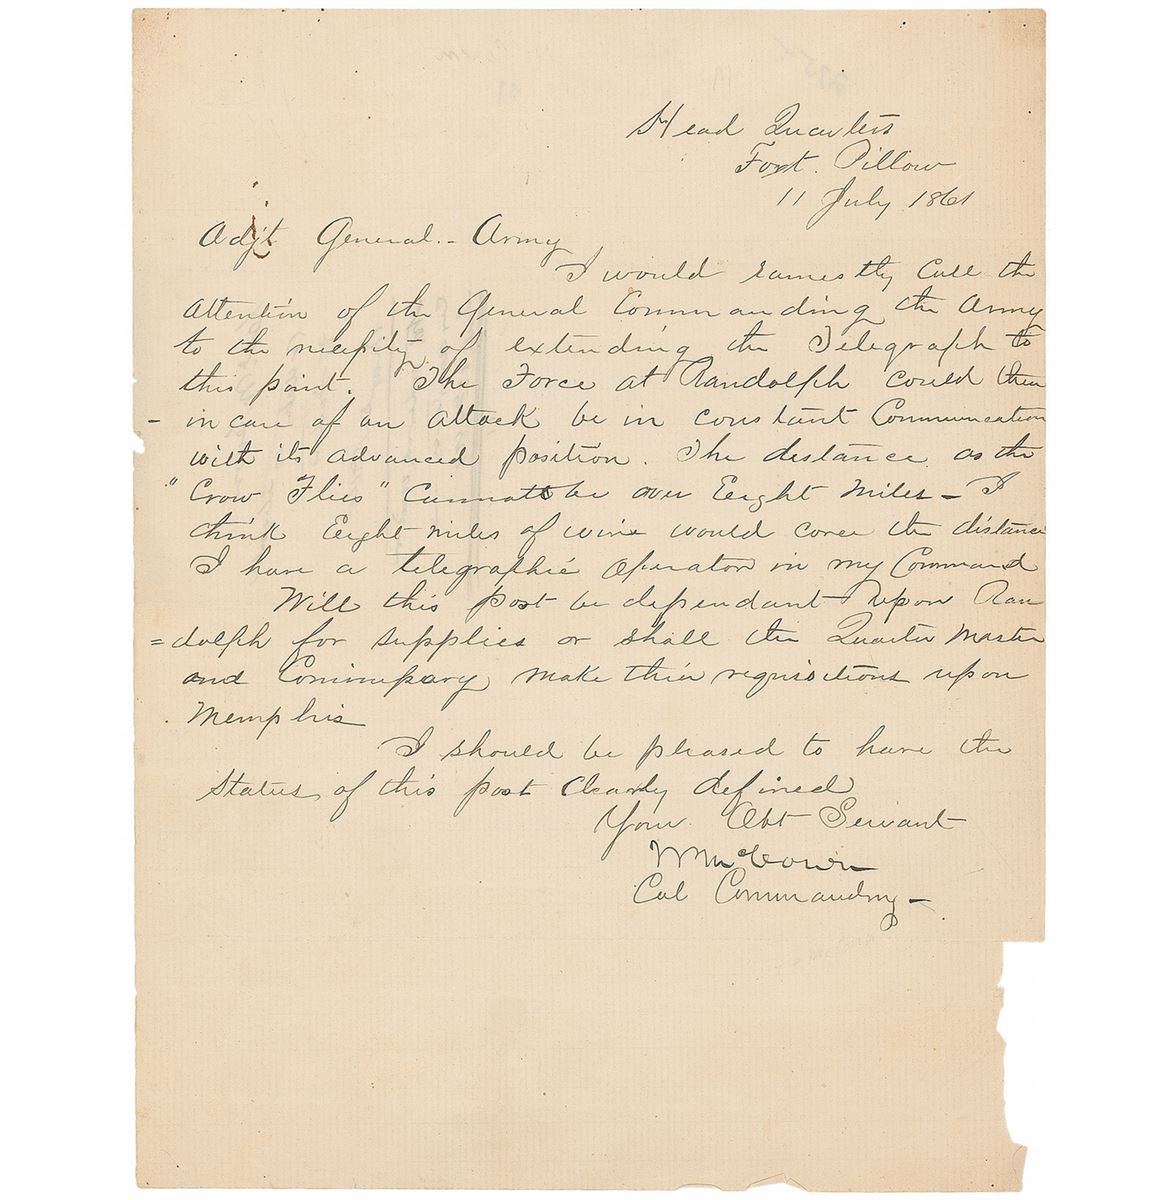 Head Quarters
Fort. Pillow
11 July 1861
Adjt General. - Army
I would earnestly call the
attention of the General Commanding the Army
to the necessity of extending the Telegraph to
this point. The Force at Randolph could then
- in case of an attack be in constant Communication
with its advanced position. The distance as the
"Crow Flies" Cannot be over Eeight Miles - I
think Eeight miles of wire would cover the distance
I have a telegraphic Operator in my Command
Will this post be dependant upon Ran
=dolph for supplies or shall the Quarter Master
and Commissary make their requisitions upon
Memphis
I should be pleased to have the
status of this post clearly defined
Your Obt Servant
McCown
Col Commanding -